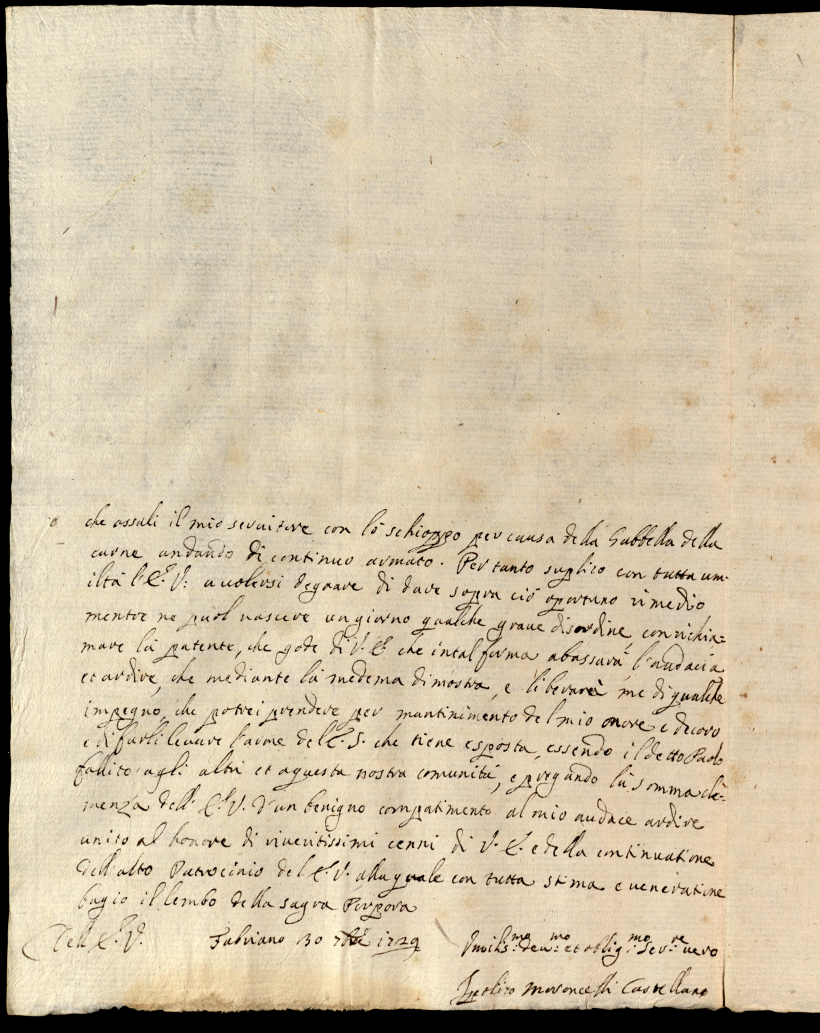 che assali il mio servitore con lo schioppo per causa della Gabbella della
carne andando di continuo armato. Per tanto suplico con tutta um-
iltà l'E. V: a volersi degnare di dare sopra ciò oportuno rimedio
mentre ne puol nascere un giorno qualche grave disordine, con richia=
mare la patente, che gode di V. E. che in tal forma abassarà l'audacia
et ardire, che mediante la medema dimostra, e liberarà me di qualche
impegno, che potrei prendere per mantinimento del mio onore e decoro
e di farli levare l'arme del E. S. che tiene esposta, essendo il detto Paolo
fallito agli altri et a questa nostra comunità, e pregando la somma cle=
menza dell' E. V. d'un benigno compatimento al mio audace ardire
unito al honore di riveritissimi cenni di V. E. e della continuatione
dell'alto Patrocinio del E. V. alla quale con tutta stima e veneratione
bagio il lembo della sagra Porpora
Dell E. V. Fabriano 30 7bre 1729 Umilis.mo dev.mo et oblig.mo Ser.re vero
Moroncelli Castellano